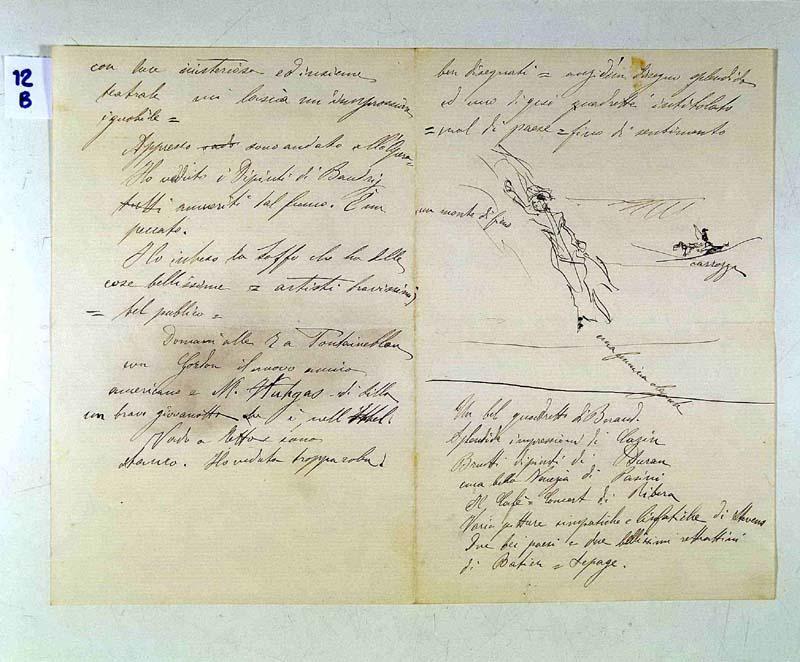 12
B
con luce misteriosa ed insieme
teatrale mi lascia un'impressione
ignobile =
Appresso vado sono andato all'Opera =
Ho veduto i Dipinti di Baudry
tutti anneriti dal fumo. È un
peccato.
Ho inteso la Saffo che ha delle
cose bellissime = artisti bravissimi,
= bel publico =
Domani alle 7 a Fontainebleau
con Gordon il nuovo amico
americano e M.
un bravo giovanotto che è nell'
Vado a letto e sono
stanco. Ho veduto troppa roba.
ben disegnati = disegno splendido
ed uno di quei quadretti intitolato
= mal di paese = fino di sentimento
un monte di
carrozza
una
Un bel quadretto di Beraud.
Splendide impressioni di Cazin
Brutti dipinti di Duran
una bella Venezia di Pasini
Il Cafè = Concert di Ribera
Varie pitture simpatiche e linfatiche di Stevens
Due bei paesi e due bellissimi rittrattini
di Bastien = Lepage.